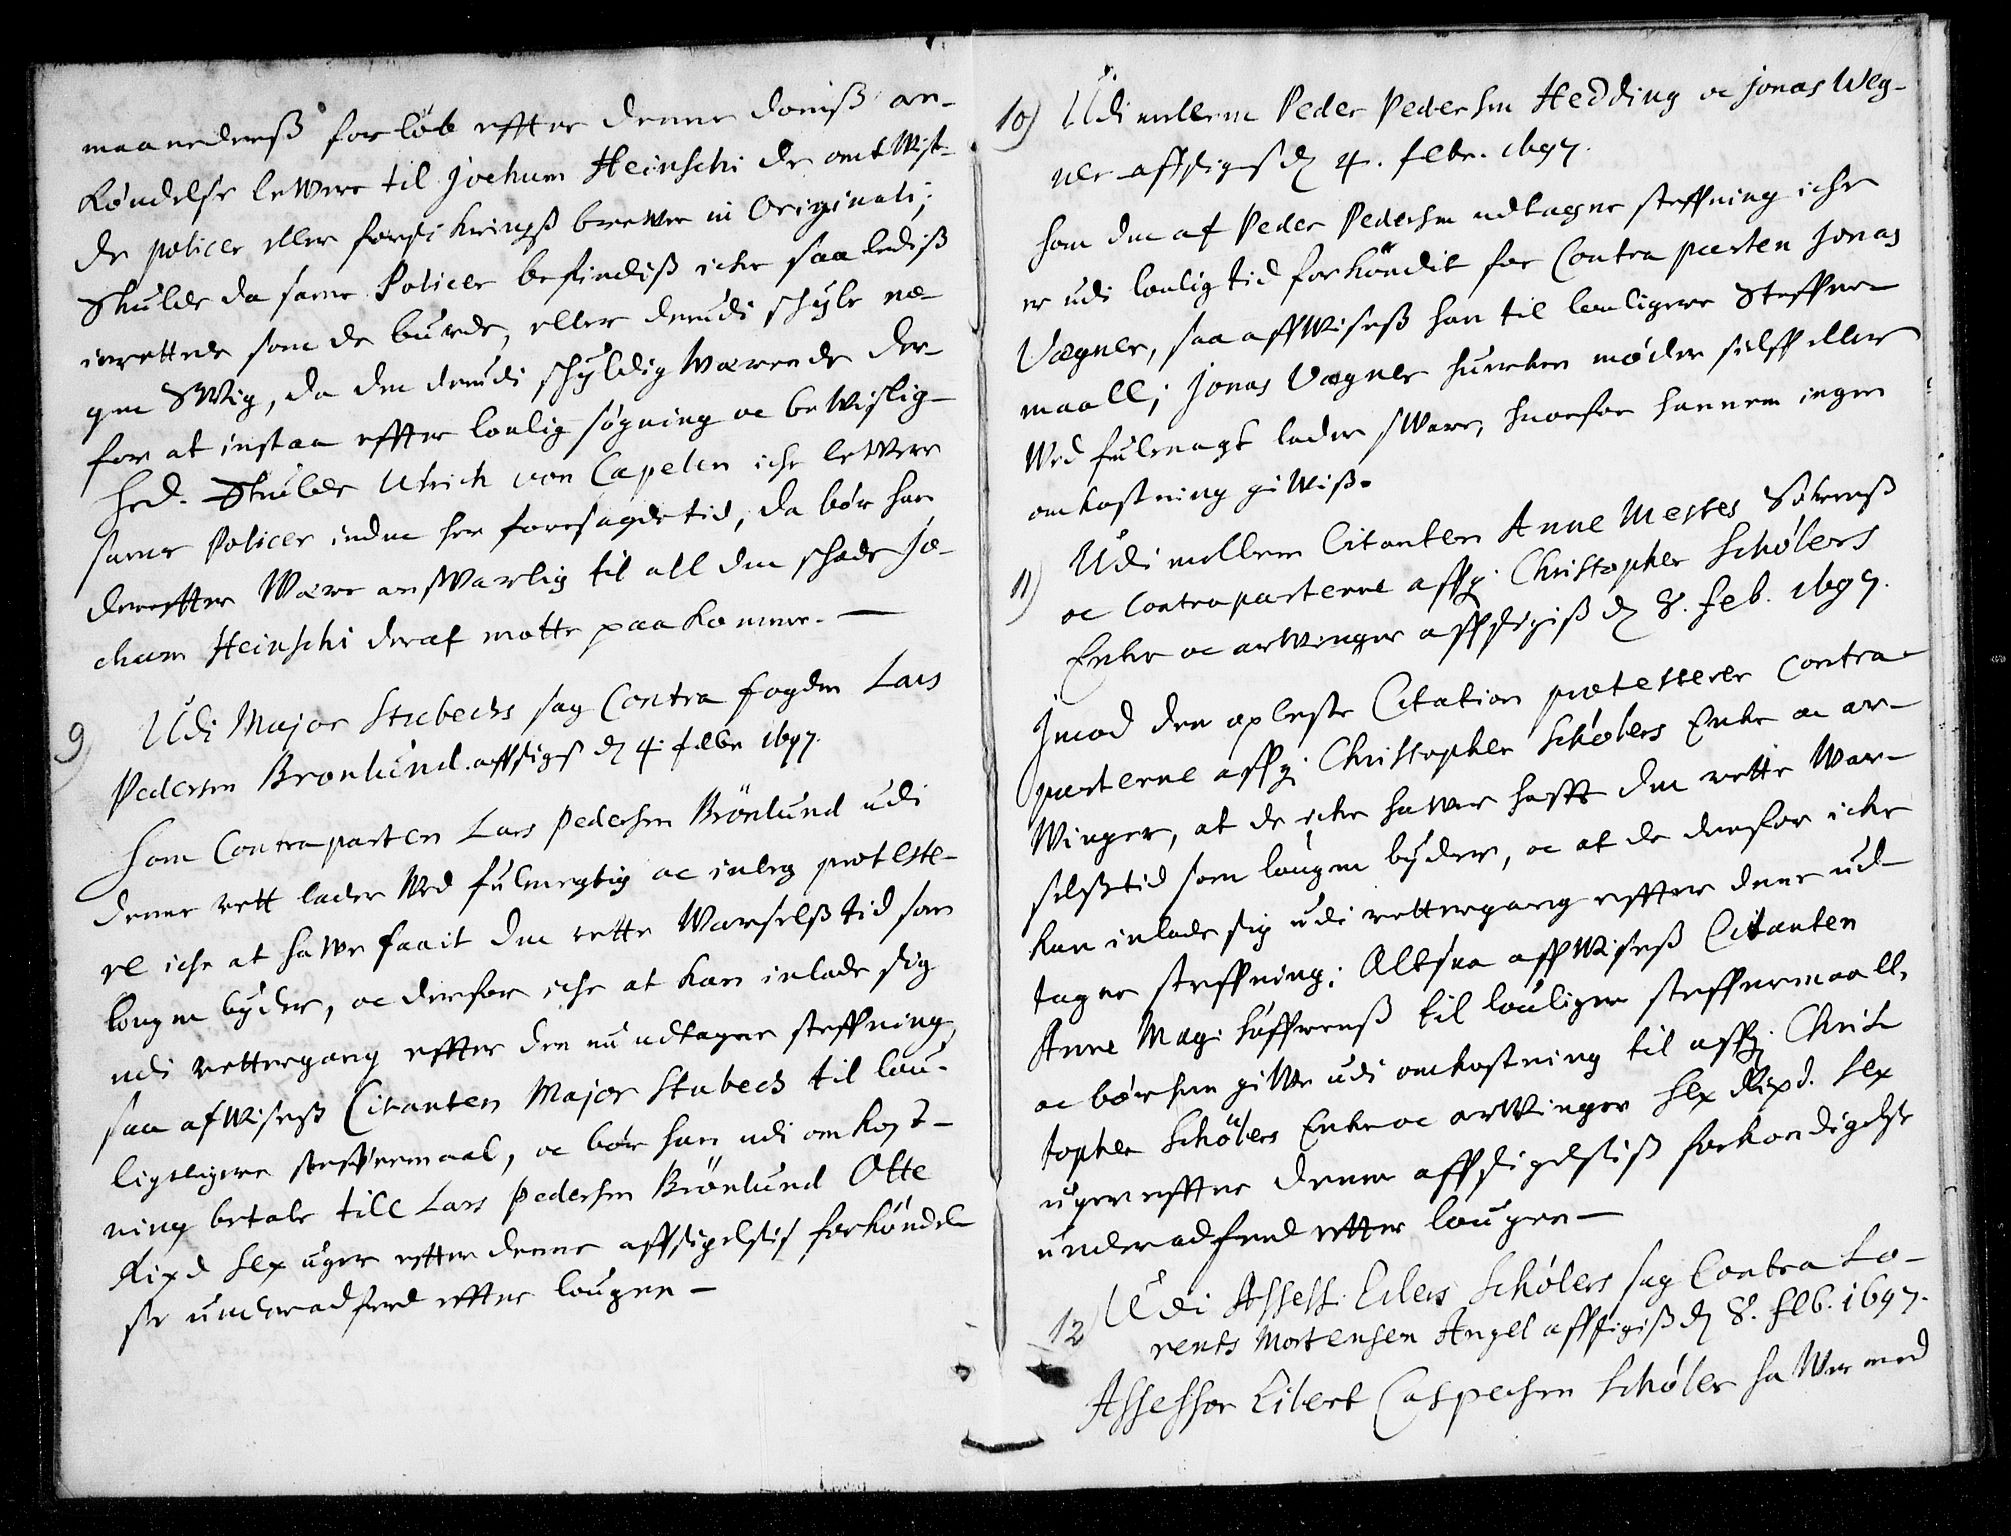 maanederß forløb effter denne domiß an-
køndelse lewere til Jochum Heinschi de omtwist-
de policer eller forsickringß brewe in Originali;
Skulde da samme Policer befindiß icke saaledeß
inrettede som de burde, eller derudi schyle no-
gen Swig, da den derudi schyldig werende der-
for at instaa effter loulig søgning oc bewislig-
hed. Skulde Ulrich von Capelen iche lewere
samme Policer inden her foresagde tid, da bør han
dereffter were answarlig til all den schade Jo-
chum Heinschi deraf motte paakomme.
9) Udi Major Stubechs sag Contra fogden Lars
Pedersen Brønlund. affsigt d 4. febr 1697.
Som Contraparten Lars Pedersen Brönlund udi
denne rett lader Wed fulmegtig oc inleg proteste-
re iche at hawe faait den rette Warselß tid som
lougen byder, oc derfor iche at kan inlade sig
udi rettergang effter den nu udtagne steffning,
saa afwiseß Citanten Major Stubech til lou-
ligeligere steffnemaal, oc bør han udi omkost-
ning betale till Lars Pedersen Brönlund Otte
Rixd sex uger effter denne affsigelsis forkøndel-
se under adferd effter lougen-
10) Udi mellem Peder Pedersen Hedding oc Jonas Weg-
ner affsigeß d 4. febr. 1697.
Som den af Peder Pedersen udtagne steffning iche
er udi loulig tid forköndit for Contraparten Jonas
Vægner, saa affwiseß han til louligere Steffne-
maall; Jonas Vægner huercken møder sielff eller
Wed fulmagt lader sware, huorfor hannem ingen
omkostning giwiß.
11) Udi mellem Citanten Anne Mestes
oc Contraparterne affg. Christopher Schølers
Enke oc arwinger affsigiß d 8. Feb. 1697.
Imod den oplæste Citation protesterer Contra-
parterne affg: Christopher Schølers Enke oc ar-
winger, at de icke hawer hafft den rette War-
selßtid som lougen byder, oc at de derfor icke
kan inlade sig udi rettergang effter denne ud-
tagne steffning: Altsaa affwiseß Citanten
Anne Mag: til louligere steffnemaall,
oc bør hun giwe udi omkostning til affg: Chris-
topher Schölers Enke oc arwinger sex Rixd. sex
uger effter denne affsigelsiß forkøndigelse
under adferd effter lougen-
12 Udi Assess. Eilers Schølers sag Contra Lo-
rents Mortensen Angel affsigiß d 8. feb. 1697.
Assessor Eilert Caspersen Schøler hawer med